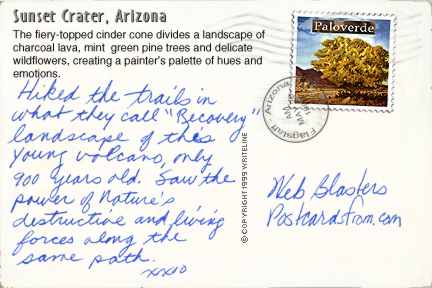 Sunset Crater, Arizona
The fiery-topped cinder cone divides a landscape of
charcoal lava, mint green pine trees and delicate
wildflowers, creating a painter's palette of hues and
emotions.
Hiked the trails in
what they call "Recovery"
landscape of this
young volcano, only
900 years old. Saw the
power of Nature's
destructive and living
forces along the
same path.
xxxo
© COPYRIGHT 1999 WRITELINE
Paloverde
Flagstaff Arizona
MAY
Web Blasters
Postcardsfrom.com